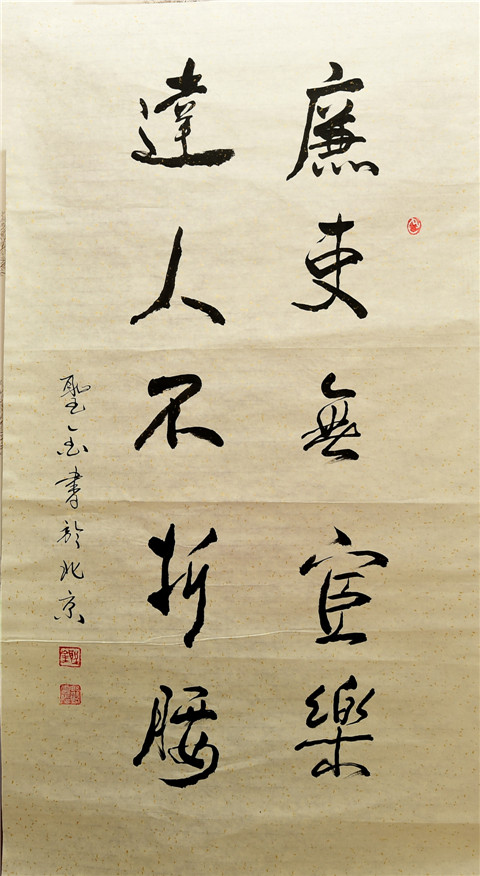 廉吏無宦樂
達人不折腰
聖全書於北京